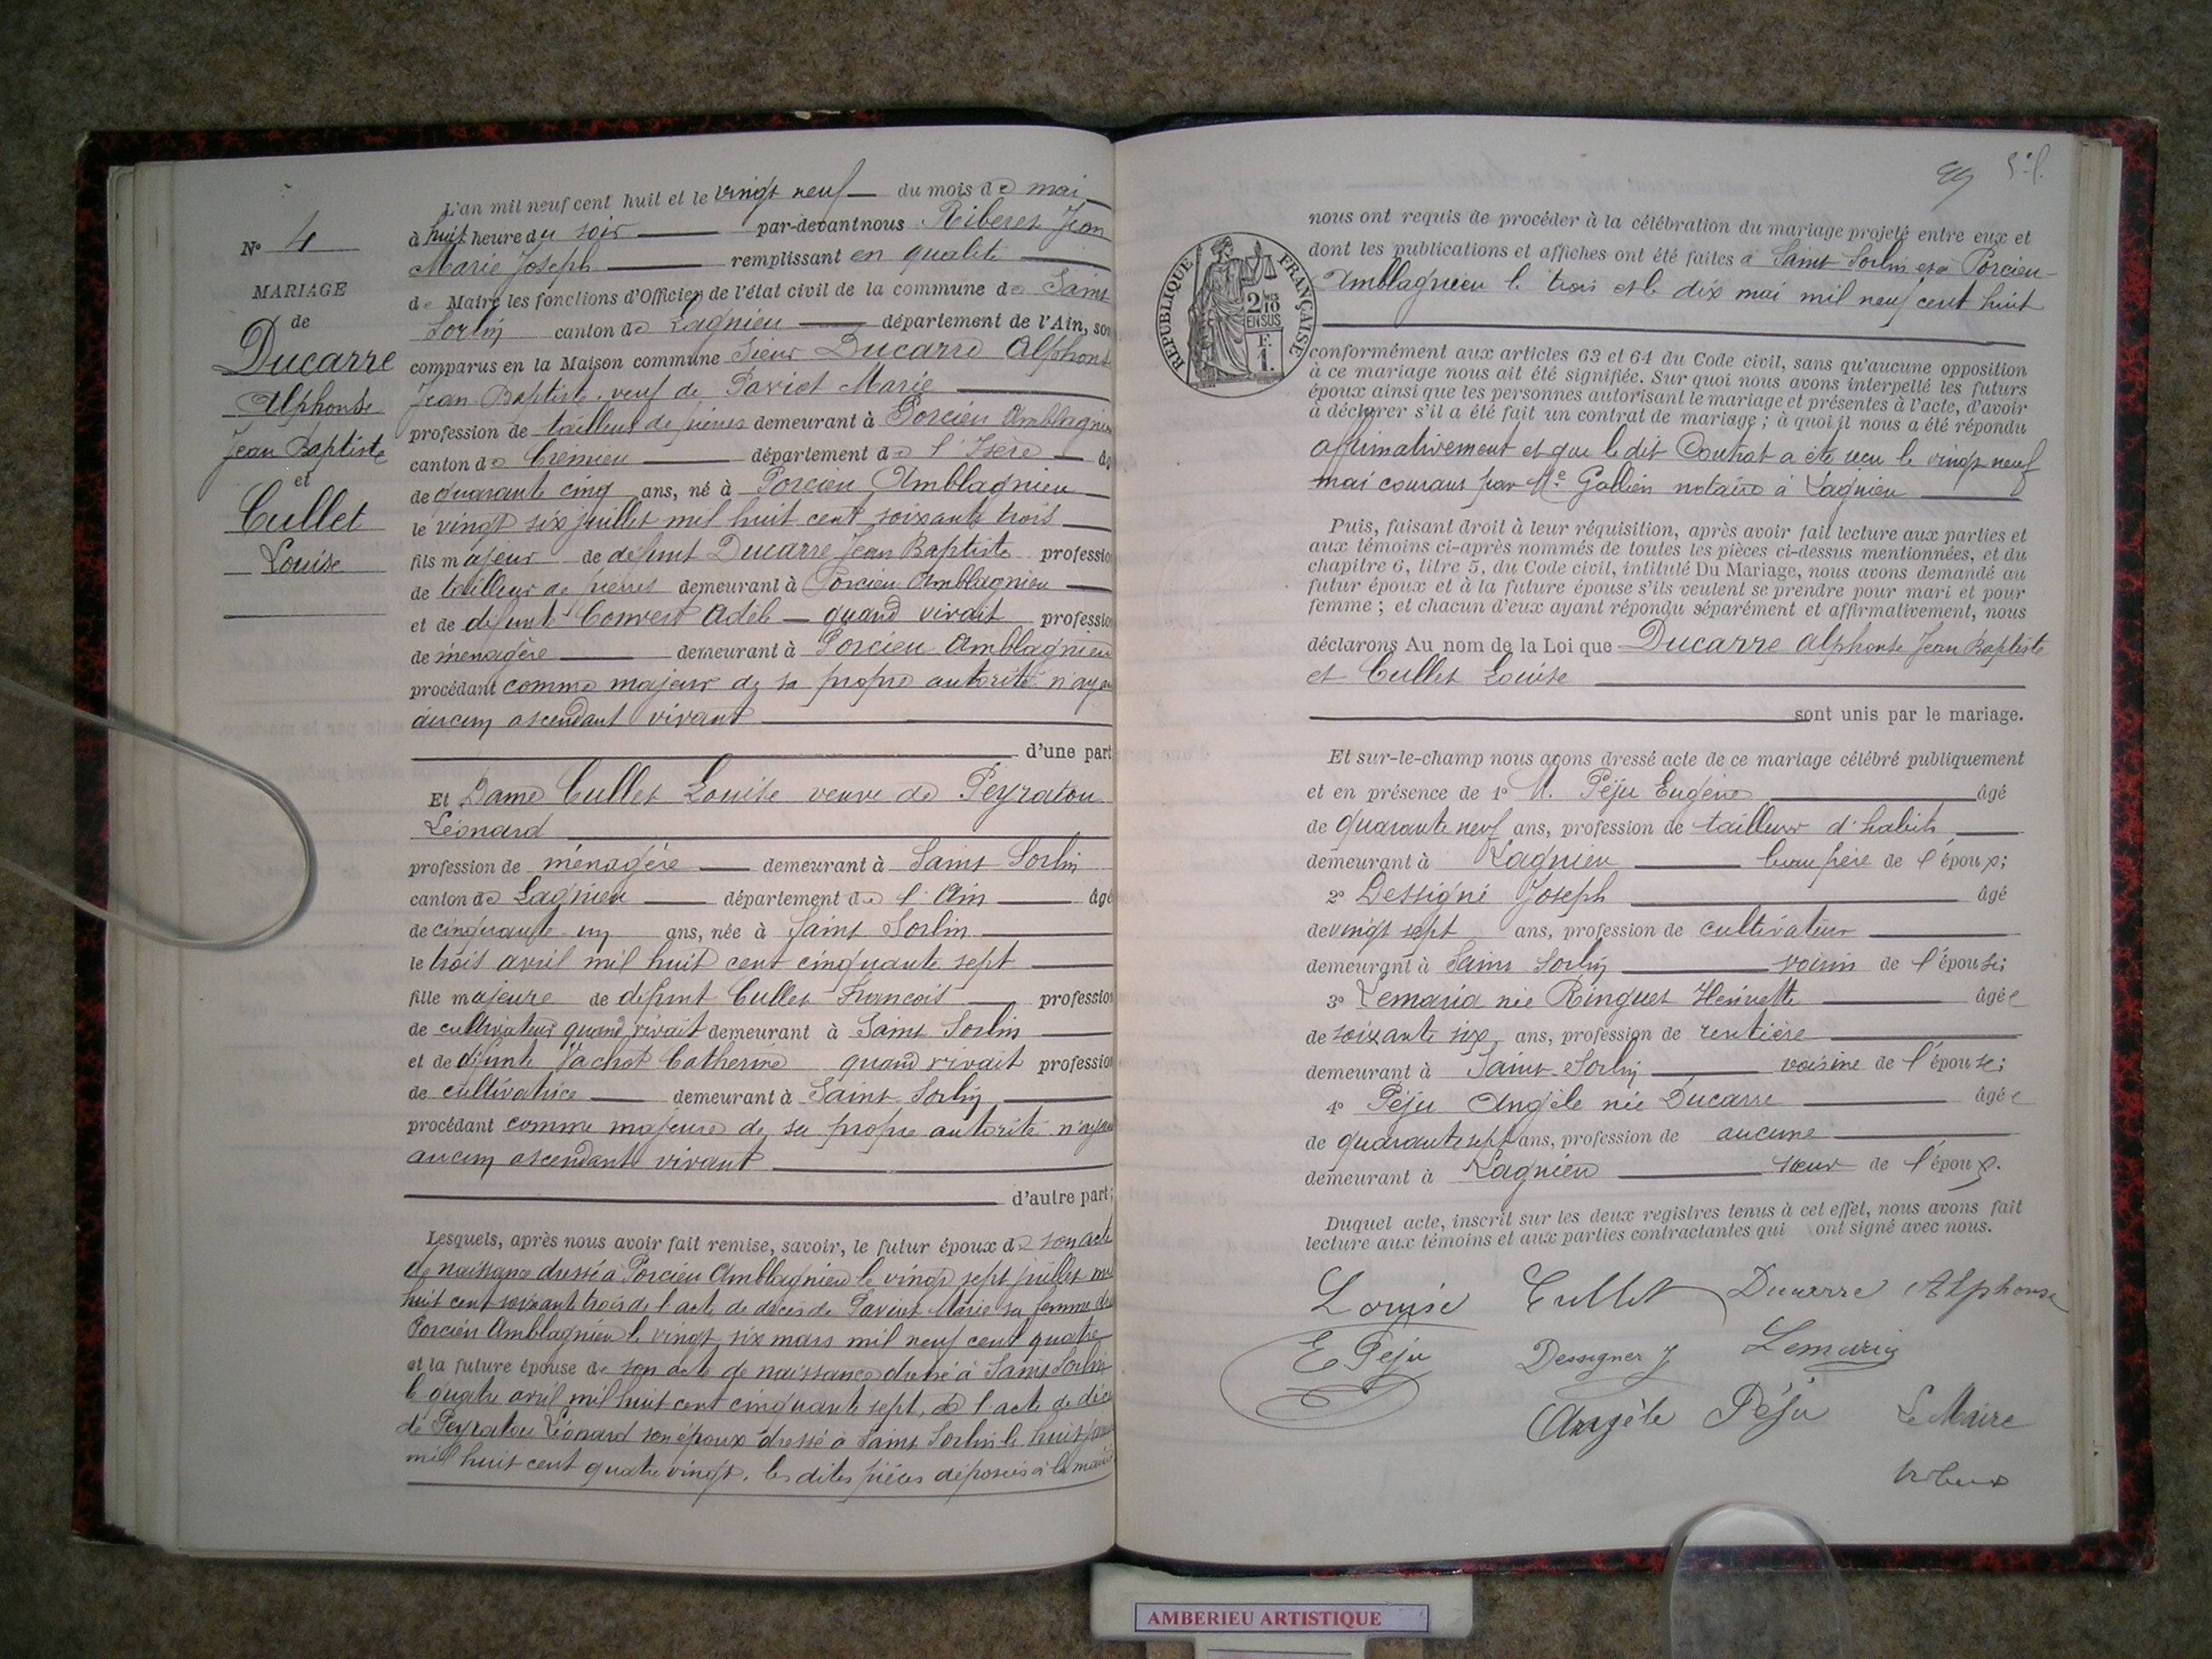 N° 4
MARIAGE
de
Ducarre
Alphonse
Jean Baptiste
et
Cullet
Louise
L'an mil neuf cent huit et le vingt neuf du mois de mai
à huit heure du soir par-devant nous Riberet Jean
Marie Joseph remplissant en qualité
de Maire les fonctions d'Officier de l'état civil de la commune de Saint
Sorlin canton de Lagnieu département de l'Ain, son
comparus en la Maison commune Sieur Ducarre Alphons
Jean Baptiste veuf de Paviot Marie
profession de tailleur de pierres demeurant à Porcieu Amblagnieu
canton de Cremieu département de l'Isère
de quarante cinq ans, né à Porcieu Amblagnieu
le vingt six juillet mil huit cent soixante trois
fils majeur de défunt Ducarre Jean Baptiste professio
de tailleur de pierres demeurant à Porcieu Amblagnieu
et de défunte Convert Adèle quand vivait professio
de ménagère demeurant à Porcieu Amblagnieu
procédant comme majeur de sa propre autorité n'aya
aucun ascendant vivant
d'une part
Et Dame Cullet Louise veuve de Peyratou
Léonard
profession de ménagère demeurant à Saint Sorlin
canton de Lagnieu département de l'Ain âgé
de cinquante un ans, née à Saint Sorlin
le trois avril mil huit cent cinquante sept
fille majeure de défunt Cullet Francois profession
de cultivateur quand vivait demeurant à Saint Sorlin
et de défunte Vachot Catherine quand vivait profession
de cultivatrice demeurant à Saint-Sorlin
procédant comme majeure de sa propre autorité n'ayan
aucun ascendant vivant
d'autre part;
Lesquels, après nous avoir fait remise, savoir, le futur époux de son acte
de naissance dressé à Porcieu Amblagnieu le vingt sept juillet mil
huit cent soixante trois de l'acte de décès de Paviot Marie sa femme
Porcieu Amblagnieu le vingt six mars mil neuf cent quatre
et la future épouse de son acte de naissance dressé à Saint Sorlin
le quatre avril mil huit cent cinquante sept, de l'acte de déc
de Peyratou Léonard son époux dressé à Saint Sorlin le huit
mil huit cent quatre vingt. les dites pièces déposées à la mairie
99
RÉPUBLIQUE FRANÇAISE
2/10 EN SUS
F. 1.
nous ont requis de procéder à la célébration du mariage projeté entre eux et
dont les publications et affiches ont été faites à Saint Sorlin et à Porcieu-
Amblagnieu le trois et le dix mai mil neuf cent huit
conformément aux articles 63 et 64 du Code civil, sans qu'aucune opposition
à ce mariage nous ait été signifiée. Sur quoi nous avons interpellé les futurs
époux ainsi que les personnes autorisant le mariage et présentes à l'acte, d'avoir
à déclarer s'il a été fait un contrat de mariage ; à quoi il nous a été répondu
affirmativement et que le dit Contrat a été reçu le vingt neuf
mai courant par Me Gallien notaire à Lagnieu
Puis, faisant droit à leur réquisition, après avoir fait lecture aux parties et
aux témoins ci-après nommés de toutes les pièces ci-dessus mentionnées, et du
chapitre 6, titre 5, du Code civil, intitulé Du Mariage, nous avons demandé au
futur époux et à la future épouse s'ils veulent se prendre pour mari et pour
femme ; et chacun d'eux ayant répondu séparément et affirmativement, nous
déclarons Au nom de la Loi que Ducarre Alphonse Jean Baptiste
et Cullet Louise
sont unis par le mariage.
Et sur-le-champ nous avons dressé acte de ce mariage célébré publiquement
et en présence de 1° M. Péju Eugène âgé
de quarante neuf ans, profession de tailleur d'habits
demeurant à Lagnieu beau frère de l'époux;
2° Dessigné Joseph âgé
de vingt sept ans, profession de cultivateur
demeurant à Saint Sorlin voisin de l'épouse;
3° Lemaria née Ringuet Henriette âgée
de soixante six ans, profession de rentière
demeurant à Saint-Sorlin voisine de l'épouse;
4° Péju Angèle née Ducarre âgée
de quarante sept ans, profession de aucune
demeurant à Lagnieu sœur de l'époux.
Duquel acte, inscrit sur les deux registres tenus à cet effet, nous avons fait
lecture aux témoins et aux parties contractantes qui ont signé avec nous.
Louise Cullet Ducarre Alphonse
E Peju Dessigner J Lemaria
Angèle Péju Le Maire
AMBERIEU ARTISTIQUE